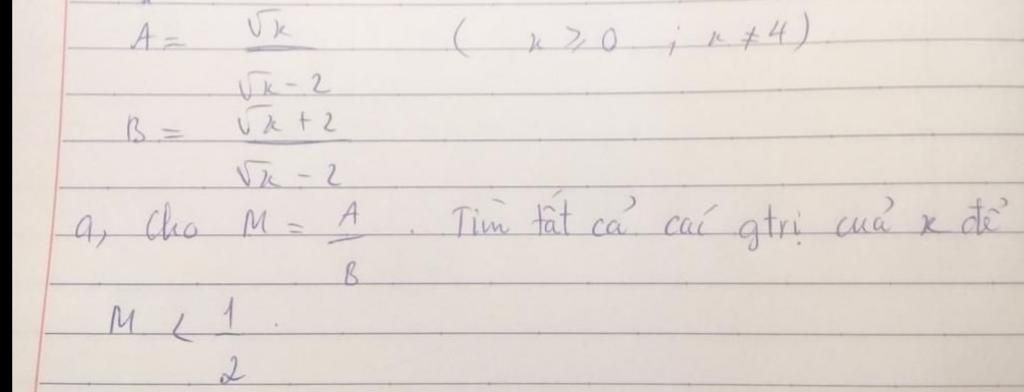 A = √x / (√x - 2) ( x ≥ 0 ; x ≠ 4)
B = (√x + 2) / (√x - 2)
a, Cho M = A / B . Tìm tất cả các gtrị của x để
M < 1 / 2 .